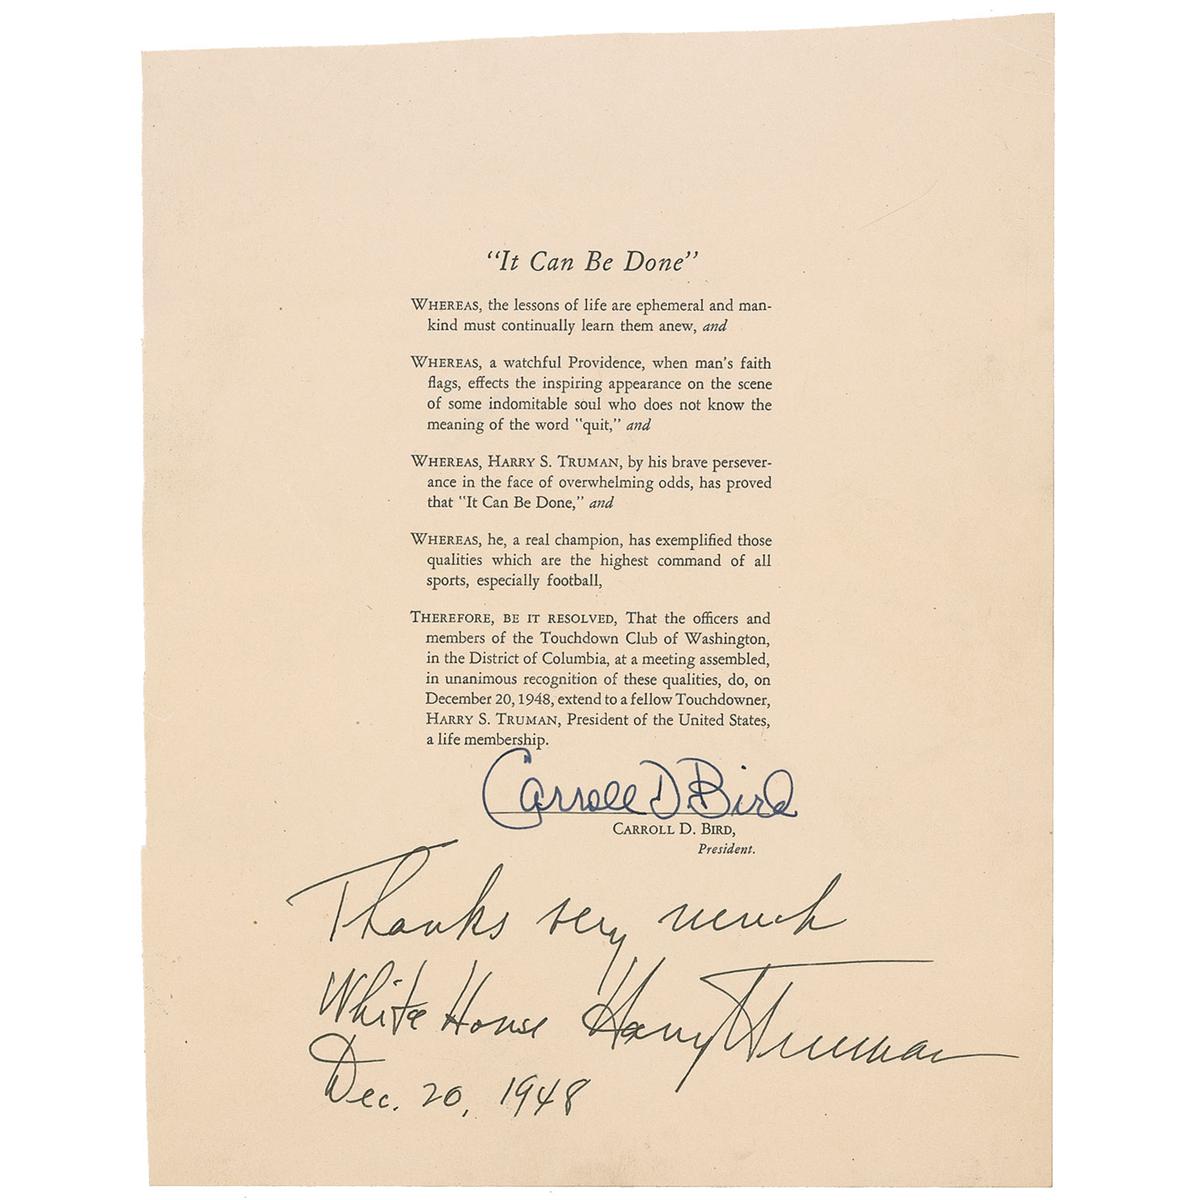 “It Can Be Done”
WHEREAS, the lessons of life are ephemeral and man-
kind must continually learn them anew, and
WHEREAS, a watchful Providence, when man's faith
flags, effects the inspiring appearance on the scene
of some indomitable soul who does not know the
meaning of the word "quit," and
WHEREAS, HARRY S. TRUMAN, by his brave persever-
ance in the face of overwhelming odds, has proved
that "It Can Be Done," and
WHEREAS, he, a real champion, has exemplified those
qualities which are the highest command of all
sports, especially football,
THEREFORE, BE IT RESOLVED, That the officers and
members of the Touchdown Club of Washington,
in the District of Columbia, at a meeting assembled,
in unanimous recognition of these qualities, do, on
December 20, 1948, extend to a fellow Touchdowner,
HARRY S. TRUMAN, President of the United States,
a life membership.
Carroll D Bird
CARROLL D. BIRD,
President.
Thanks very much
White House Harry S Truman
Dec. 20, 1948